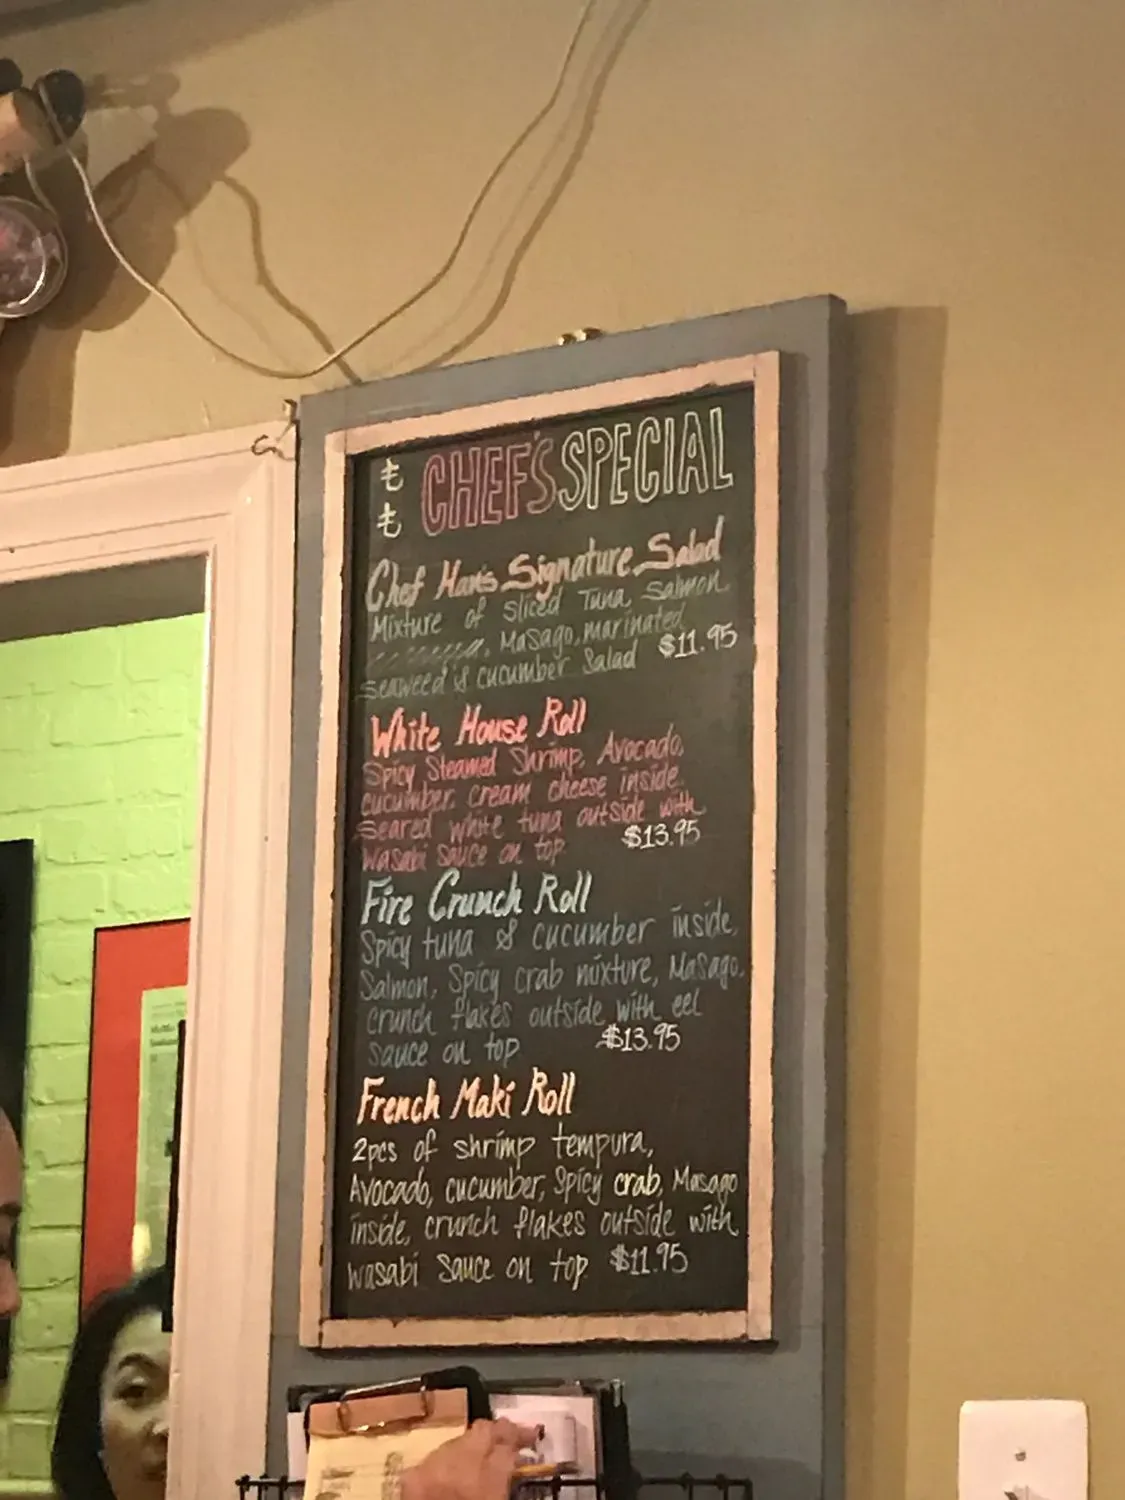 CHEF'S SPECIAL
Chef Han's Signature Salad
Mixture of sliced Tuna, Salmon,
, Masago, marinated
seaweed & cucumber Salad $11.95
White House Roll
Spicy Steamed Shrimp, Avocado,
cucumber, cream cheese inside
Seared white tuna outside with
wasabi sauce on top $13.95
Fire Crunch Roll
Spicy tuna & cucumber inside,
Salmon, Spicy crab mixture, Masago,
crunch flakes outside with eel
sauce on top $13.95
French Maki Roll
2pcs of shrimp tempura,
Avocado, cucumber, Spicy crab, Masago
inside, crunch flakes outside with
wasabi sauce on top $11.95